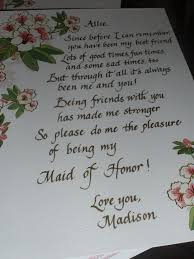 Allie,
Since before I can remember
you have been my best friend
Lots of good times, fun times,
and some sad times, too
But through it all it's always
been me and you!
Being friends with you
has made me stronger
So please do me the pleasure
of being my
Maid of Honor!
Love you,
Madison